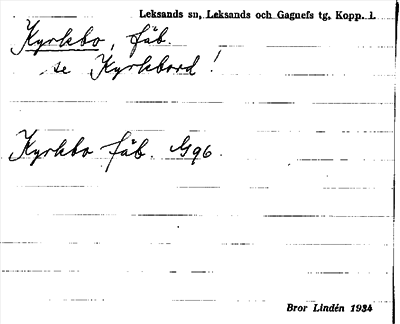 Leksands sn, Leksands och Gagnefs tg, Kopp. l.
Kyrkbo, fäb.
se Kyrkbord!
Kyrkbo fäb. G96.
Bror Lindén 1934